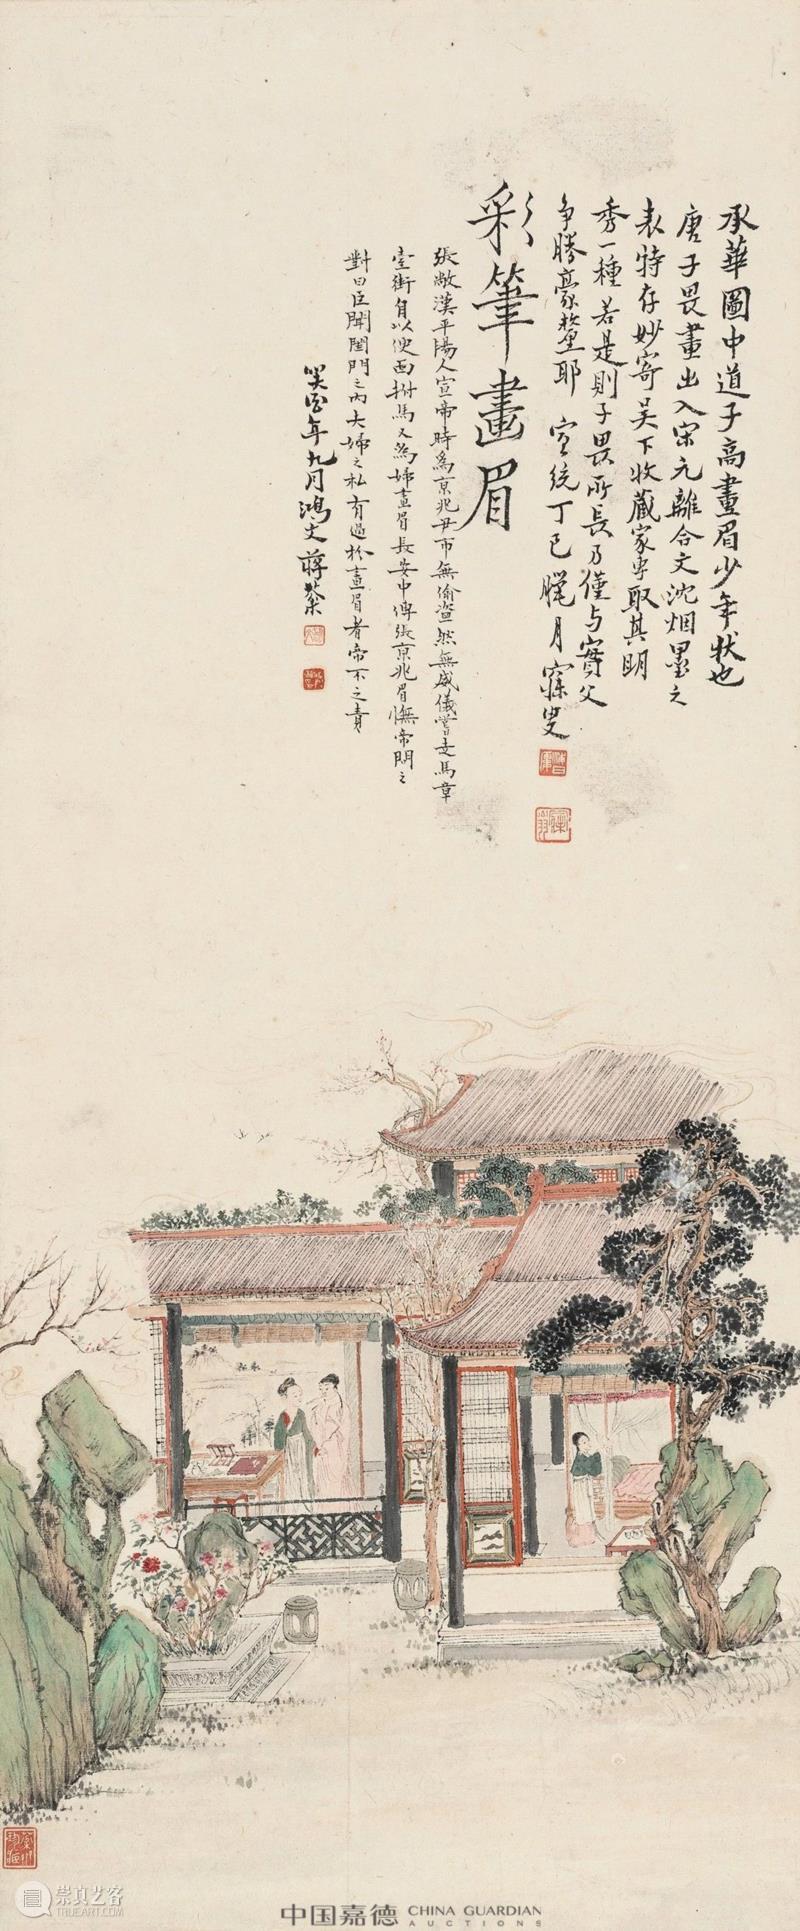 承華圖中道子高畫眉少年狀也
唐子畏畫出入宋元離合文沈烟墨之
表特存妙寄吴下收藏家專取其明
秀一種若是則子畏所長乃僅与實父
争勝豪釐耶 宣統丁巳臘月寐叟
彩筆畫眉
張敞漢平陽人宣帝時為京兆尹市無偷盗然無威儀嘗走馬章
臺街自以便面拊馬又為婦畫眉長安中傳張京兆眉憮帝問之
對曰臣聞閨門之内夫婦之私有過於畫眉者帝不之責
癸酉年九月鴻文蔣棻
崇真艺客
中国嘉德 CHINA GUARDIAN
AUCTIONS